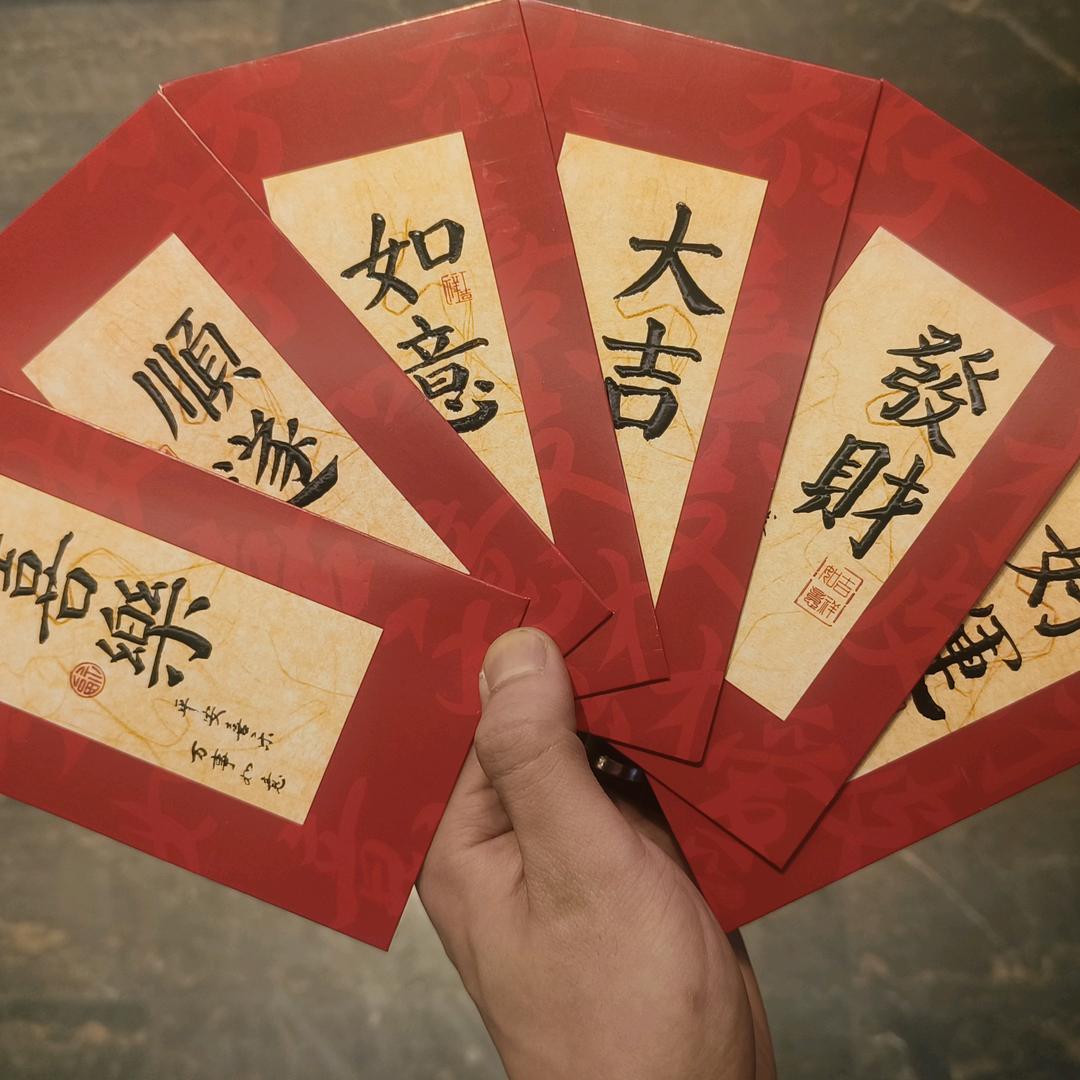 喜樂
平安喜乐
万事如意
順遂
如意
大吉
發財
好運